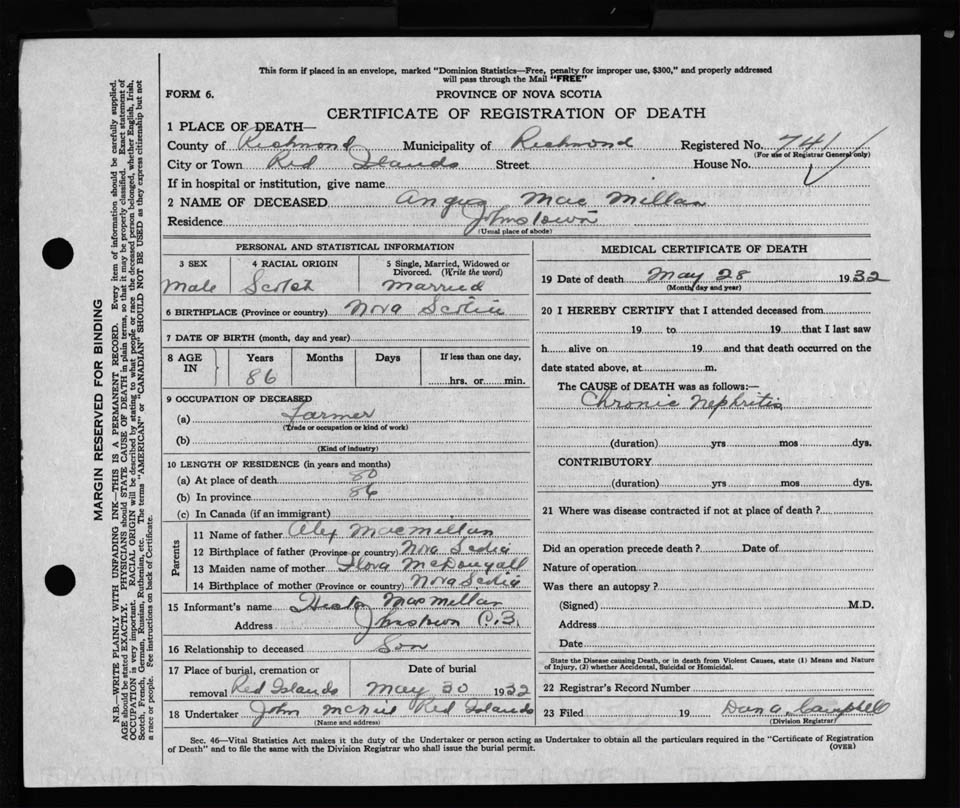 This form if placed in an envelope, marked "Dominion Statistics—Free, penalty for improper use, $300," and properly addressed
will pass through the Mail "FREE"
FORM 6.
PROVINCE OF NOVA SCOTIA
CERTIFICATE OF REGISTRATION OF DEATH
1 PLACE OF DEATH—
County of Richmond Municipality of Richmond Registered No. 741
(For use of Registrar General only)
City or Town Red Islands Street House No.
If in hospital or institution, give name
2 NAME OF DECEASED Angus Mac Millan
Residence Johnstown
(Usual place of abode)
PERSONAL AND STATISTICAL INFORMATION
3 SEX 4 RACIAL ORIGIN 5 Single, Married, Widowed or
Divorced. (Write the word)
Male Scotch Married
6 BIRTHPLACE (Province or country) Nova Scotia
7 DATE OF BIRTH (month, day and year)
8 AGE IN Years Months Days If less than one day,
86 hrs. or min.
9 OCCUPATION OF DECEASED
(a) Farmer
(Trade or occupation or kind of work)
(b)
(Kind of industry)
10 LENGTH OF RESIDENCE (in years and months)
(a) At place of death 80
(b) In province 86
(c) In Canada (if an immigrant)
Parents
11 Name of father Alex MacMillan
12 Birthplace of father (Province or country) Nova Scotia
13 Maiden name of mother Flora McDougall
14 Birthplace of mother (Province or country) Nova Scotia
15 Informant's name Hector MacMillan
Address Johnstown C.B.
16 Relationship to deceased Son
17 Place of burial, cremation or Date of burial
removal Red Islands May 30 1932
18 Undertaker John McNeil Red Islands
(Name and address)
MEDICAL CERTIFICATE OF DEATH
19 Date of death May 28 1932
(Month, day and year)
20 I HEREBY CERTIFY that I attended deceased from
19 to 19 that I last saw
h alive on 19 and that death occurred on the
date stated above, at m.
The CAUSE of DEATH was as follows:—
Chronic Nephritis
(duration) yrs mos dys.
CONTRIBUTORY
(duration) yrs mos dys.
21 Where was disease contracted if not at place of death?
Did an operation precede death? Date of
Nature of operation
Was there an autopsy?
(Signed) M.D.
Address
Date
State the Disease causing Death, or in death from Violent Causes, state (1) Means and Nature
of Injury, (2) whether Accidental, Suicidal or Homicidal.
22 Registrar's Record Number
23 Filed 19 Dan A. Campbell
(Division Registrar)
Sec. 46—Vital Statistics Act makes it the duty of the Undertaker or person acting as Undertaker to obtain all the particulars required in the "Certificate of Registration
of Death" and to file the same with the Division Registrar who shall issue the burial permit. (OVER)
MARGIN RESERVED FOR BINDING
N.B.—WRITE PLAINLY WITH UNFADING INK—THIS IS A PERMANENT RECORD. Every item of information should be carefully supplied.
AGE should be stated EXACTLY. PHYSICIANS should STATE CAUSE OF DEATH in plain terms, so that it may be properly classified. Exact statement of
OCCUPATION is very important. RACIAL ORIGIN will be described by stating to what people or race the deceased person belonged, whether English, Irish,
Scotch, French, German, Russian, Ruthenian, etc. The terms "AMERICAN" or "CANADIAN" SHOULD NOT BE USED as they express citizenship but not
a race or people. See instructions on back of Certificate.